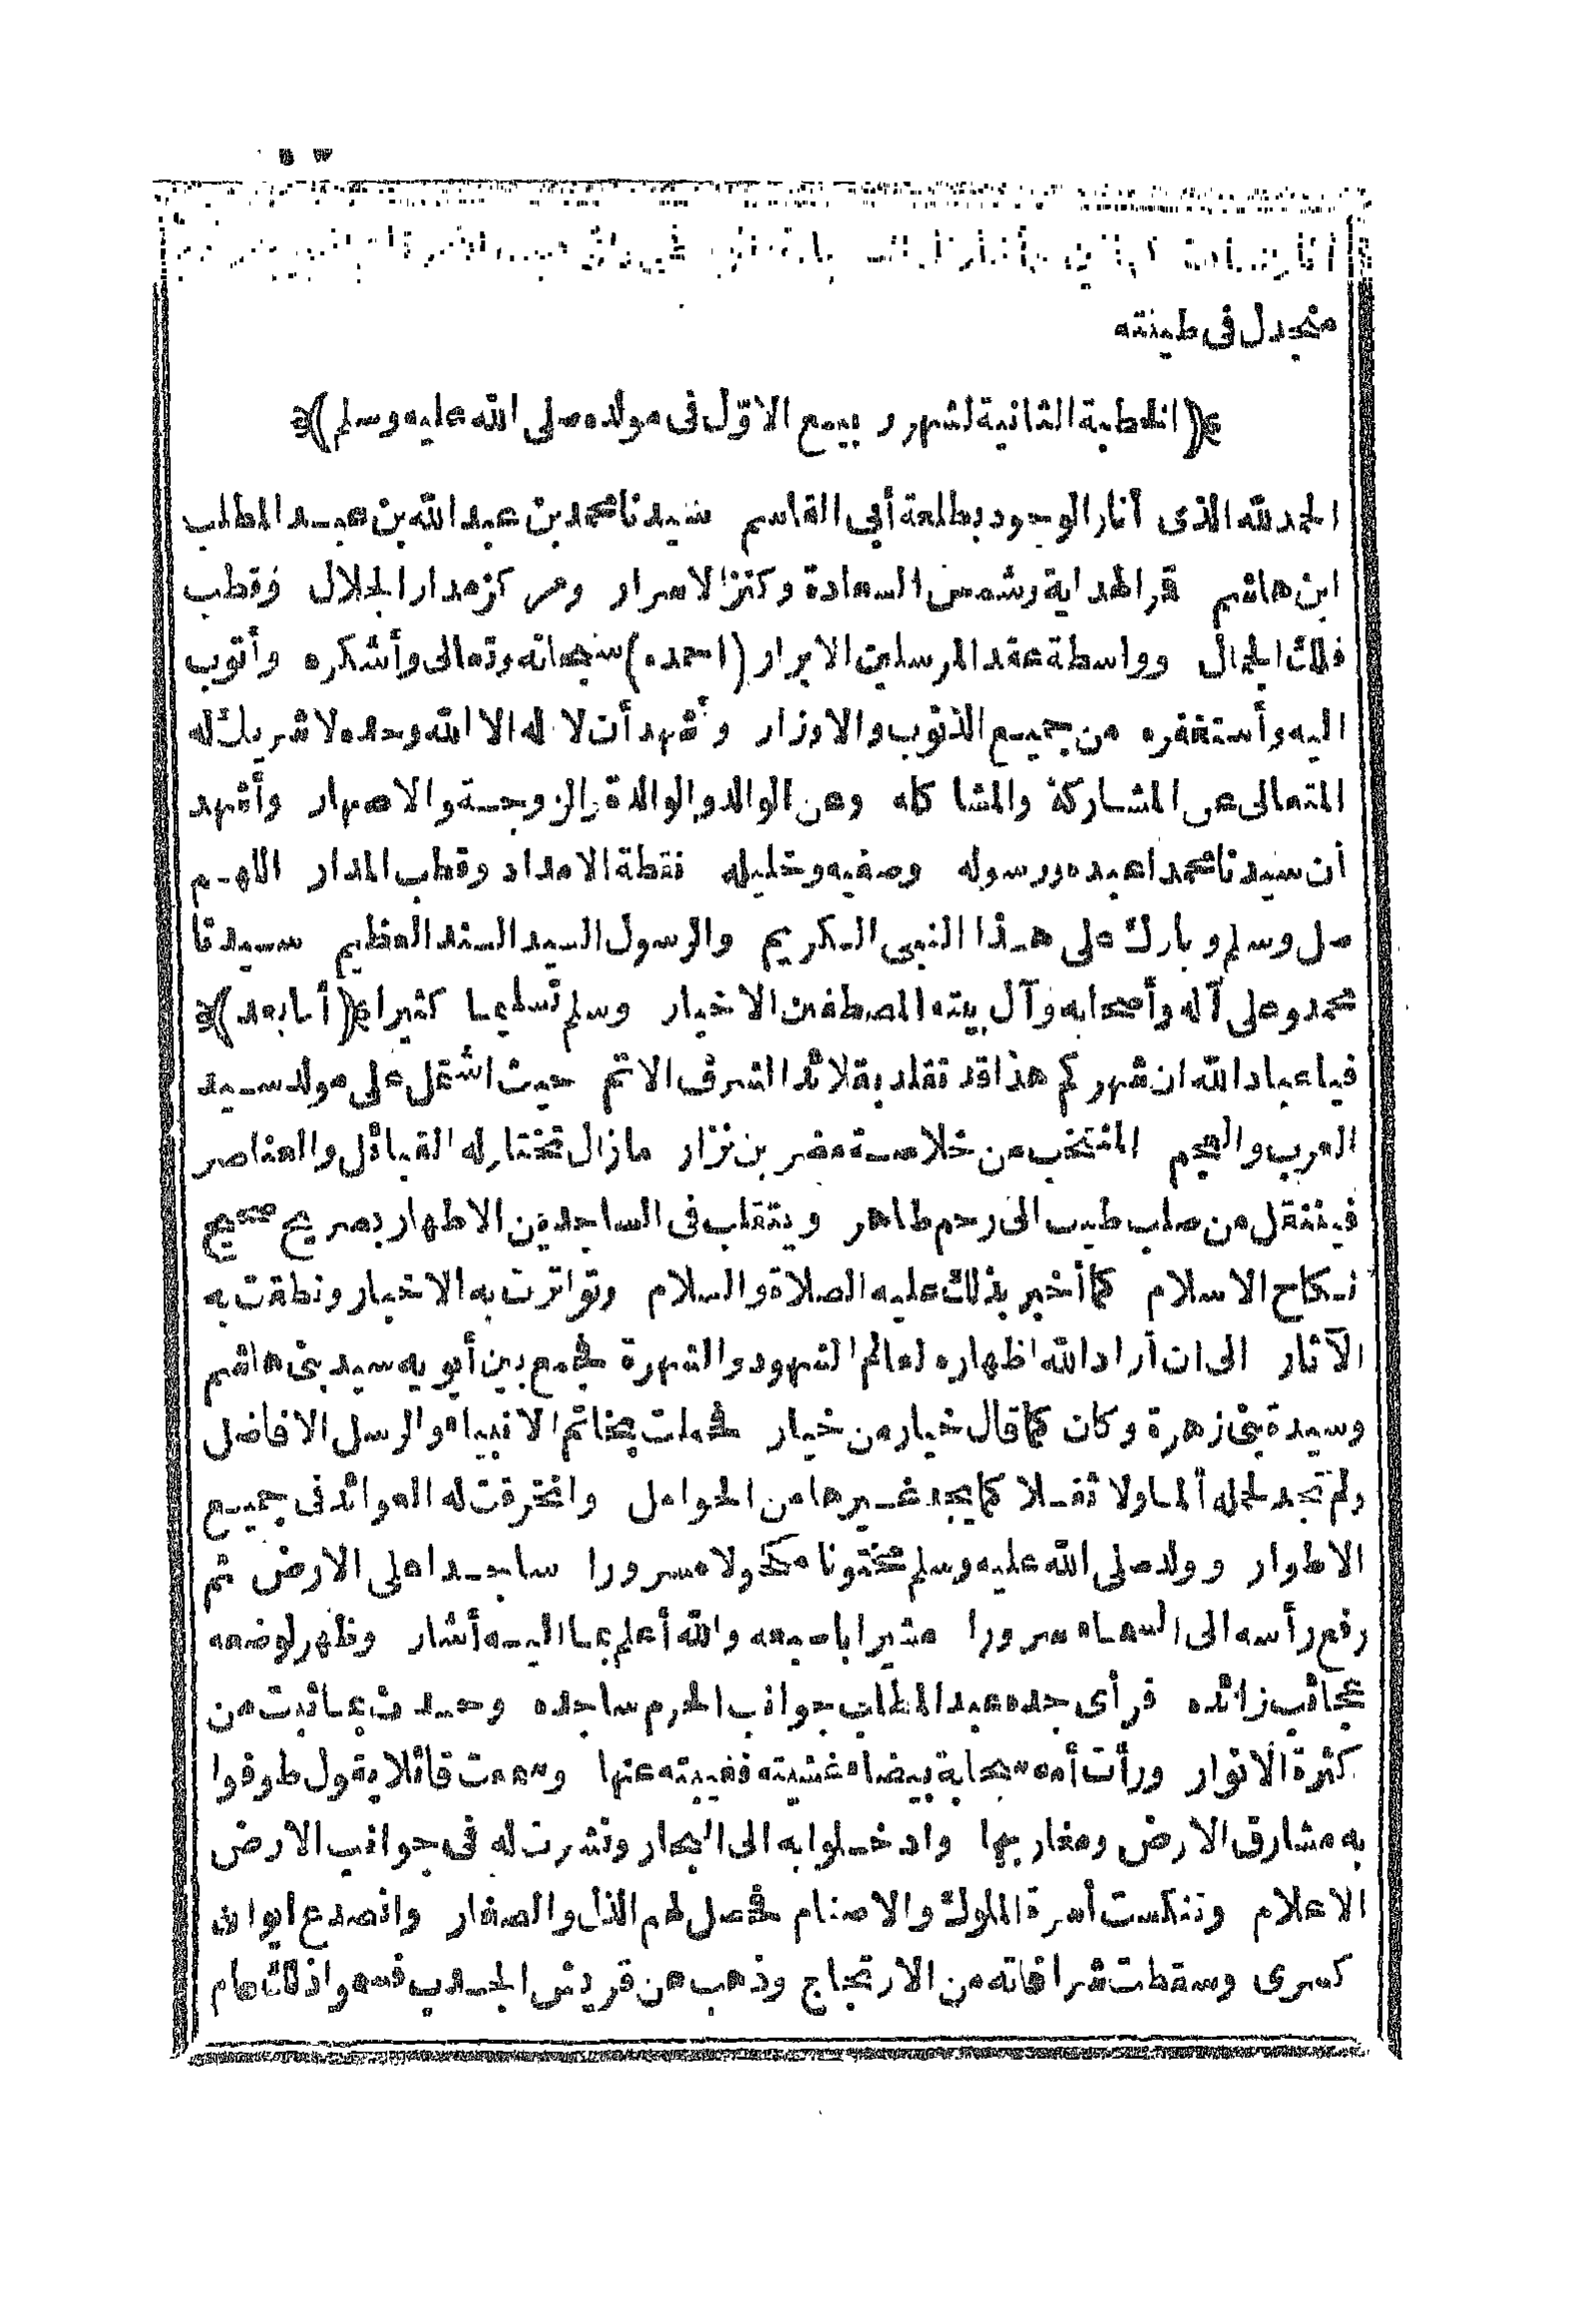 منجدل فى طينته
﴿(الخطبة الثانية لشهر ربيع الاوّل فى مولده صلى الله عليه وسلم)﴾
الحمد لله الذى أنار الوجود بطلعة أبى القاسم سيدنا محمد بن عبد الله بن عبد المطلب
ابن هاشم قمر الهداية وشمس السعادة وكنز الاسرار ومركز مدار الجلال وقطب
فلك الجمال وواسطة عقد المرسلين الابرار (احمده) سبحانه وتعالى وأشكره وأتوب
اليه وأستغفره من جميع الذنوب والاوزار وأشهد أن لا اله الا الله وحده لا شريك له
المتعالى عن المشاركة والمشاكله وعن الوالد والوالدة والزوجة والاصهار وأشهد
أن سيدنا محمدا عبده ورسوله وصفيه وخليله نقطة الامداد وقطب المدار اللهم
صل وسلم وبارك على هذا النبى الكريم والرسول السيد السند العظيم سيدنا
محمد وعلى آله وأصحابه وآل بيته المصطفين الاخيار وسلم تسليما كثيرا ﴿(أما بعد)﴾
فيا عباد الله ان شهركم هذا قد تقلد بقلائد الشرف الاتم حيث اشتمل على مولد سيد
العرب والعجم المنتخب من خلاصة مضر بن نزار ما زال تختار له القبائل والعناصر
فينتقل من صلب طيب الى رحم طاهر ويتقلب فى الساجدين الاطهار بصريح صحيح
نكاح الاسلام كما أخبر بذلك عليه الصلاة والسلام وتواترت به الاخبار ونطقت به
الآثار الى ان أراد الله اظهاره لعالم الشهود والشهرة فجمع بين أبويه سيد بنى هاشم
وسيدة بنى زهرة وكان كما قال خيار من خيار فحملت بخاتم الانبياء والرسل الافاضل
ولم تجد لحمله ألما ولا ثقلا كما يجد غيرها من الحوامل وانخرقت له العوائد فى جميع
الاطوار وولد صلى الله عليه وسلم مختونا مكحولا مسرورا ساجدا على الارض ثم
رفع رأسه الى السماء مسرورا مشيرا باصبعه والله أعلم بما اليه أشار وظهر لوضعه
عجائب زائده فرأى جده عبد المطلب جوانب الحرم ساجده وحدث عما ثبت من
كثرة الانوار ورأت أمه سحابة بيضاء غشيته فغيبته عنها وسمعت قائلا يقول طوفوا
به مشارق الارض ومغاربها وادخلوا به الى البحار ونشرت له فى جوانب الارض
الاعلام وتنكست أسرة الملوك والاصنام فحصل لهم الذل والصغار وانصدع ايوان
كسرى وسقطت شرافاته من الارتجاج وذهب من قريش الجدب فسموا ذلك عام